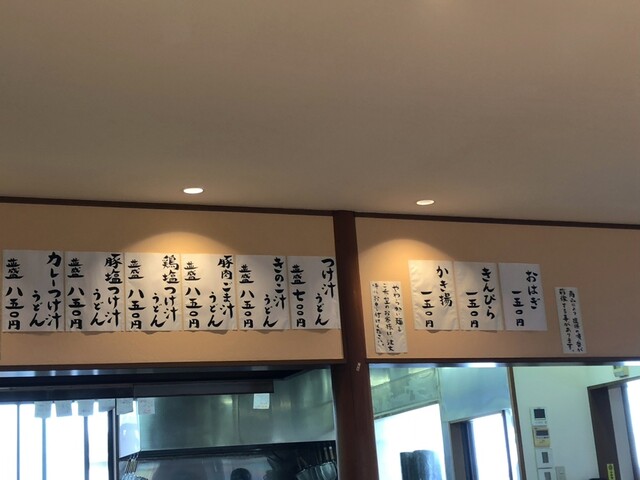 おはぎ
一五〇円
きんぴら
一五〇円
かき揚
一五〇円
つけ汁
うどん
並盛 七〇〇円
きのこ汁
うどん
並盛 八五〇円
豚肉ごま汁
うどん
並盛 八五〇円
鶏塩つけ汁
うどん
並盛 八五〇円
豚塩つけ汁
うどん
並盛 八五〇円
カレーつけ汁
うどん
並盛 八五〇円